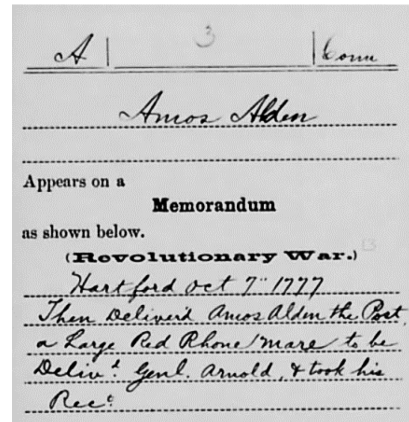 A | 3 | Conn
Amos Alden
Appears on a
Memorandum
as shown below.
(Revolutionary War.)
Hartford Oct 7" 1777
Then Deliverd Amos Alden the Post,
a Large Red Rhone mare to be
Delivd. Genl. Arnold, & took his
Rect.